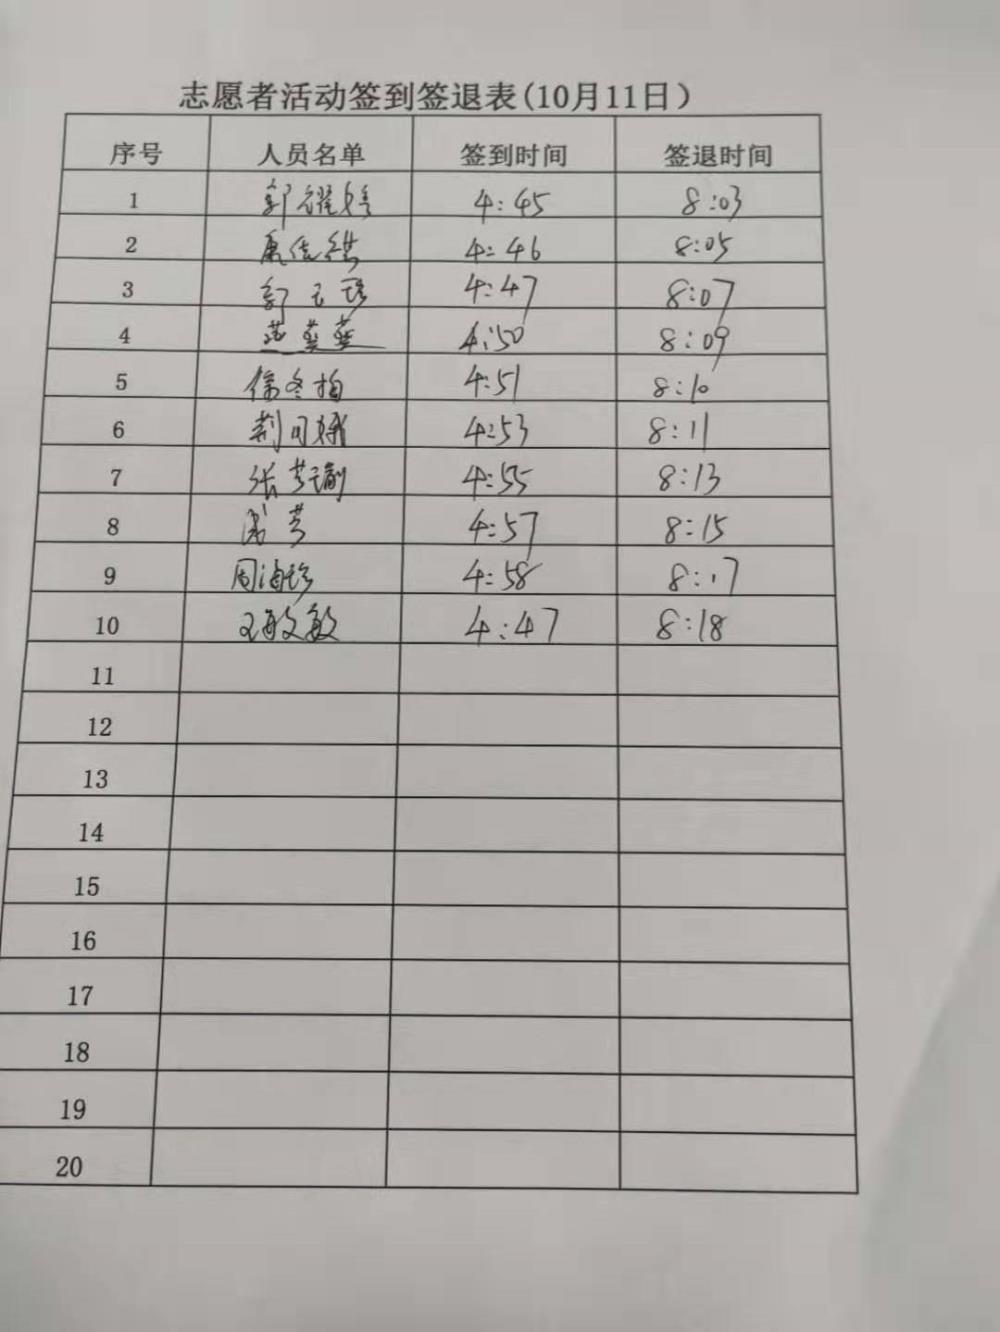 志愿者活动签到签退表(10月11日)
序号 人员名单 签到时间 签退时间
1 郭耀婷 4:45 8:03
2 4:46 8:05
3 郭玉珍 4:47 8:07
4 4:50 8:09
5 徐冬梅 4:51 8:10
6 荆月娥 4:53 8:11
7 张芳瑜 4:55 8:13
8 4:57 8:15
9 周海珍 4:58 8:17
10 王敏敏 4:47 8:18
11
12
13
14
15
16
17
18
19
20